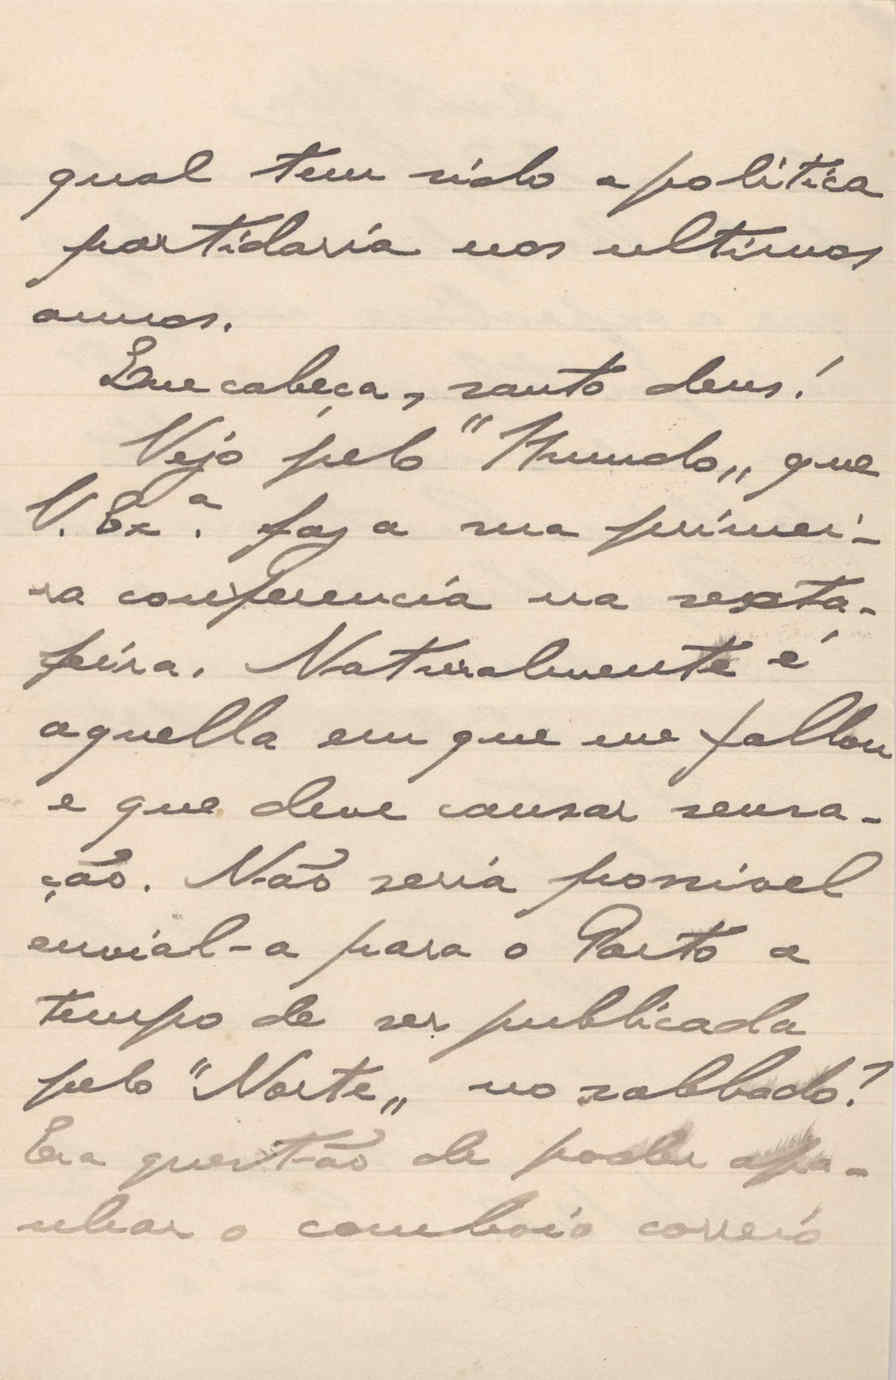 qual tem sido a politica
partidaria nos ultimos
annos.
Que cabeça, santo deus!
Vejo pelo "Mundo„ que
V. Exª. faz a sua primei-
ra conferencia na sexta-
feira. Naturalmente é
aquella em que me fallou
e que deve causar sensa-
ção. Não seria possivel
envial-a para o Porto a
tempo de ser publicada
pelo "Norte„ no sabbado?
Era questão de poder apa-
nhar o comboio correio